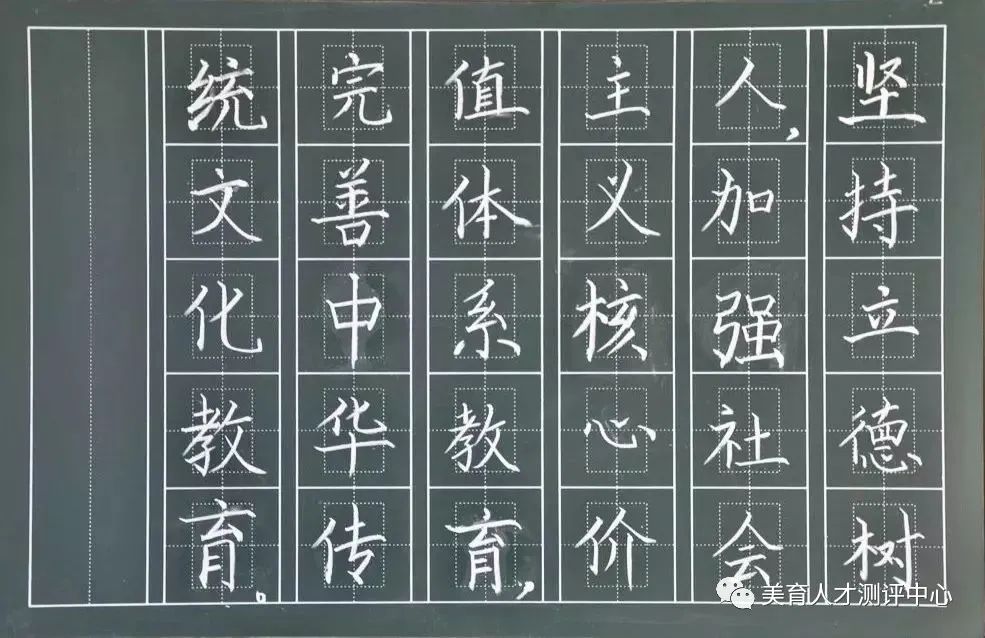 坚持立德树
人，加强社会
主义核心价
值体系教育，
完善中华传
统文化教育。
美育人才测评中心